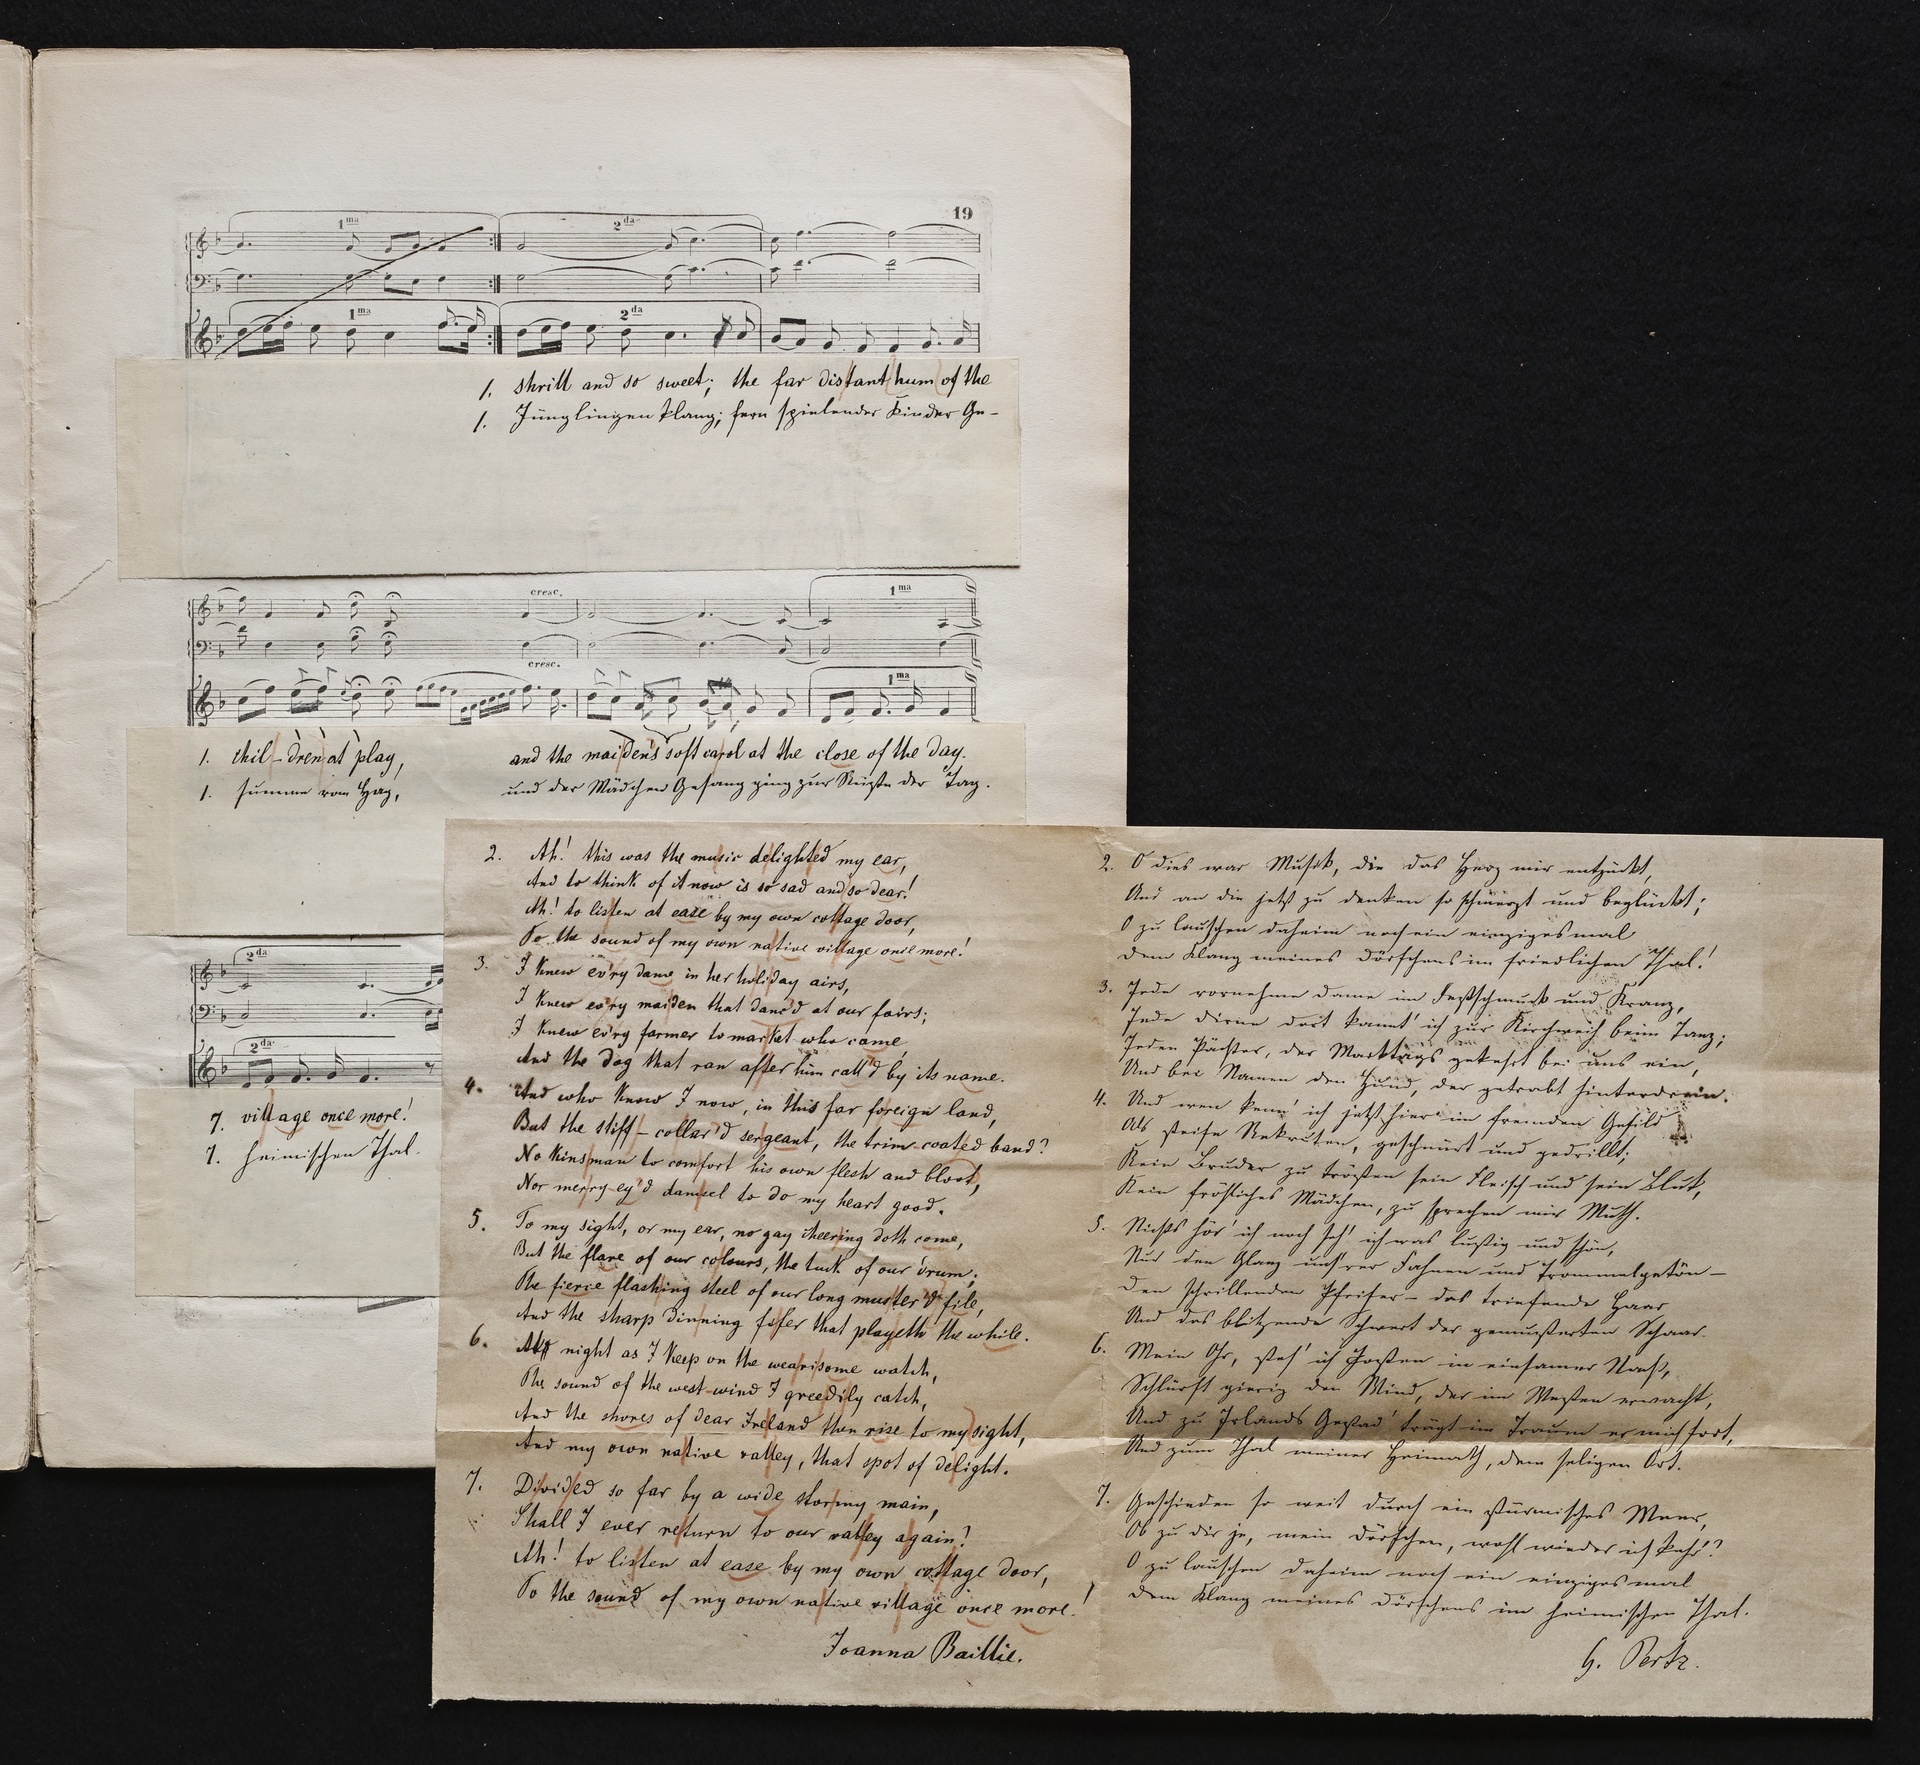 19
1ma 2da
1ma 2da
1. shrill and so sweet; the far distant hum of the
1. Jünglingen klang; fern spielender Kinder Ge-
cresc. 1ma
cresc. 1ma
1. chil-dren at play, and the maiden's soft carol at the close of the day.
1. summe vom Hag, und der Mädchen Gesang ging zur Rüste der Tag.
2da
2da
7. village once more!
7. heimischen Thal.
2. Ah! this was the music delighted my ear,
And to think of it now is so sad and so dear!
Ah! to listen at ease by my own cottage door,
To the sound of my own native village once more!
3. I knew ev'ry dame in her holiday airs,
I knew ev'ry maiden that danc'd at our fairs;
I knew ev'ry farmer to market who came
And the dog that ran after him call'd by its name.
4. And who know I now, in this far foreign land,
But the stiff-collar'd sergeant, the trim-coated band?
No kinsman to comfort his own flesh and bloot,
Nor merry-ey'd damsel to do my heart good.
5. To my sight, or my ear, no gay cheering doth come,
But the flare of our colours, the tuck of our drum;
The fierce flashing steel of our long muster'd file,
And the sharp dinning fifer that playeth the while.
6. At night as I keep on the wearisome watch,
The sound of the west-wind I greedily catch,
And the shores of dear Ireland then rise to my sight,
And my own native valley, that spot of delight.
7. Divided so far by a wide stormy main,
Shall I ever return to our valley again?
Ah! to listen at ease by my own cottage door,
To the sound of my own native village once more!
Joanna Baillie.
2. O dies war Musik, die das Herz mir entzückt,
Und an die jetzt zu denken so schmerzt und beglückt;
O zu lauschen daheim noch ein einzigesmal
Dem Klang meines Dörfchens im friedlichen Thal!
3. Jede vornehme Dame im Festschmuck und Kranz,
Jede Dirne dort kannt' ich zur Kirchweih beim Tanz;
Jeden Pächter, der Markttags gekehrt bei uns ein,
Und bei Namen den Hund, der getrabt hinterdrein.
4. Und wen kenn' ich jetzt hier im fremden Gefild
Als steife Rekruten, geschnürt und gedrillt;
Kein Bruder zu trösten sein Fleisch und sein Blut,
Kein fröhliches Mädchen, zu sprechen mir Muth.
5. Nichts hör' ich noch seh' ich was lustig und schön,
Nur den Glanz uns'rer Fahnen und Trommelgetön –
Den schrillenden Pfeifer – das triefende Haar
Und das blitzende Schwert der gemusterten Schaar.
6. Mein Ohr, steh' ich Posten in einsamer Nacht,
Schlürft gierig den Wind, der im Westen erwacht,
Und zu Irlands Gestad' trägt im Traum er mich fort,
Und zum Thal meiner Heimath, dem seligen Ort.
7. Geschieden so weit durch ein stürmisches Meer,
Ob zu dir je, mein Dörfchen, wohl wieder ich kehr'?
O zu lauschen daheim noch ein einzigesmal
Dem Klang meines Dörfchens im heimischen Thal.
G. Pertz.